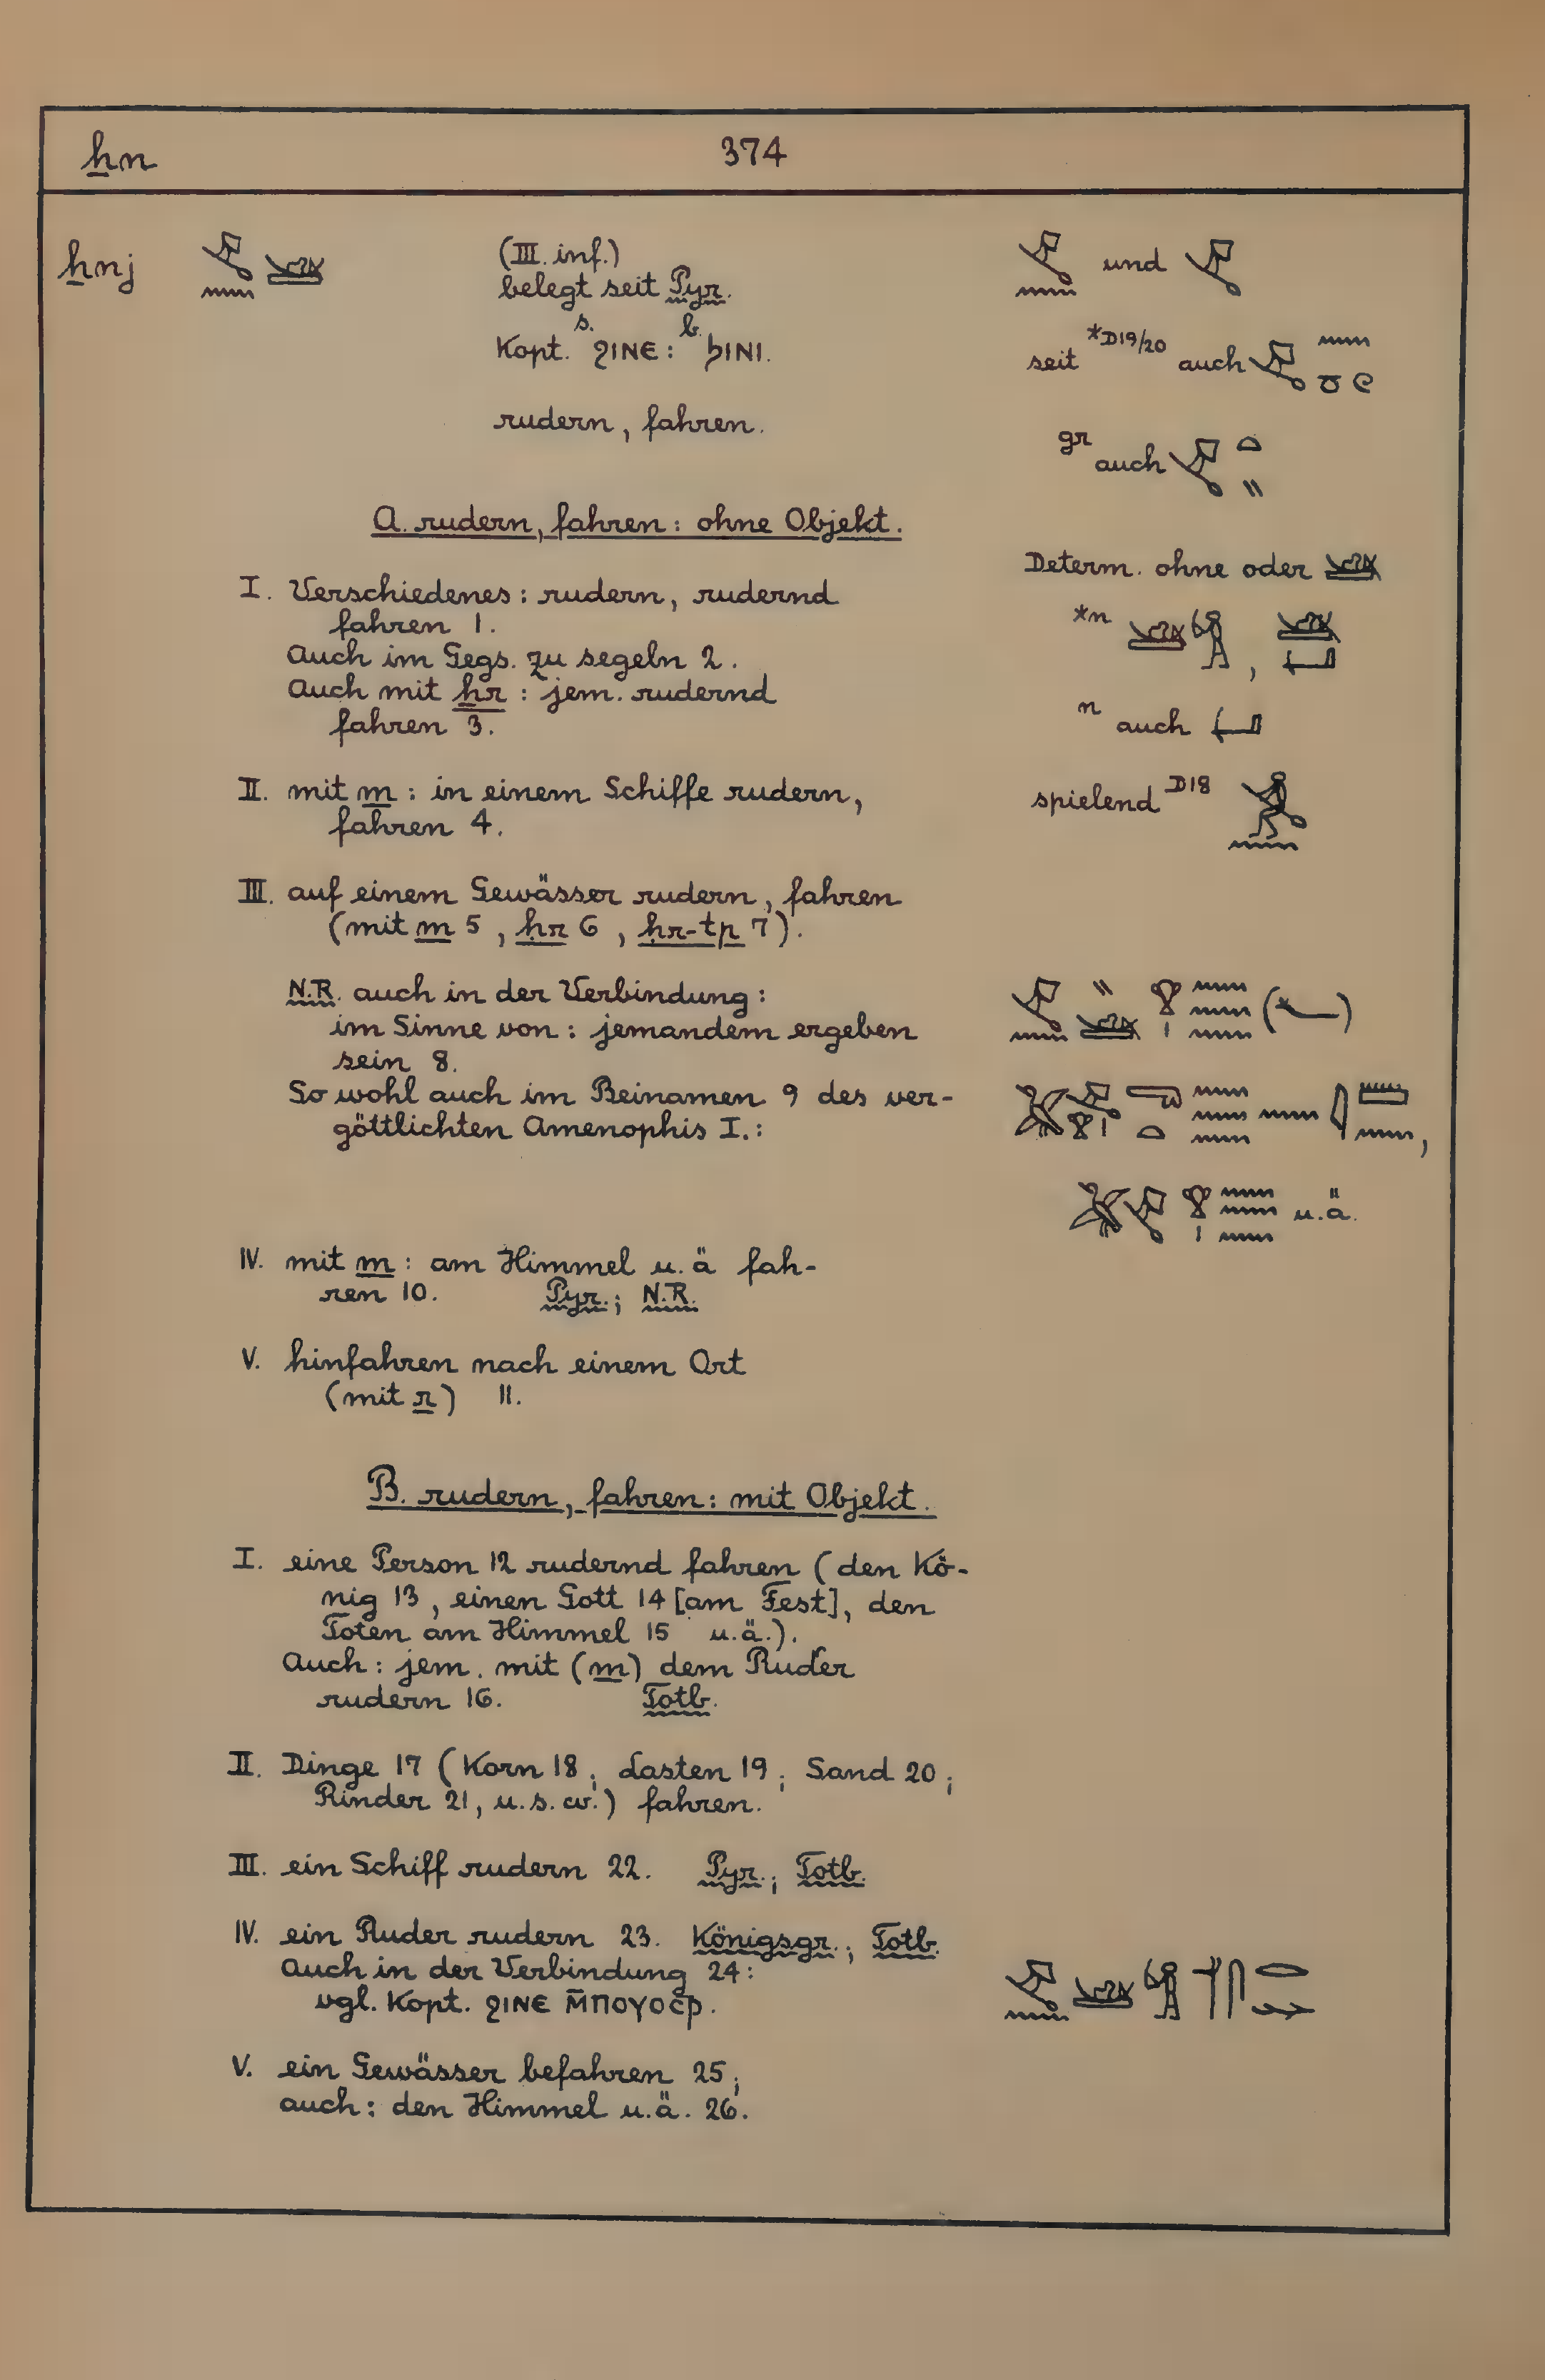 ẖn 374
ẖnj (III. inf.)
belegt seit Pyr.
Kopt. s. ϩΙΝΕ : b. ϧΙΝΙ.
rudern, fahren.
und
seit *D19/20 auch
gr auch
A. rudern, fahren: ohne Objekt.
Determ. ohne oder
*n
n auch
spielend D18
I. Verschiedenes: rudern, rudernd
fahren 1.
Auch im Gegs. zu segeln 2.
Auch mit ẖr : jem. rudernd
fahren 3.
II. mit m : in einem Schiffe rudern,
fahren 4.
III. auf einem Gewässer rudern, fahren
(mit m 5, ḥr 6, ḥr-tp 7).
N.R. auch in der Verbindung:
im Sinne von: jemandem ergeben
sein 8.
So wohl auch im Beinamen 9 des ver-
göttlichten Amenophis I.:
u.ä.
IV. mit m : am Himmel u.ä fah-
ren 10. Pyr.; N.R.
V. hinfahren nach einem Ort
(mit r) 11.
B. rudern, fahren: mit Objekt.
I. eine Person 12 rudernd fahren (den Kö-
nig 13, einen Gott 14 [am Fest], den
Toten am Himmel 15 u.ä.).
Auch: jem. mit (m) dem Ruder
rudern 16. Totb.
II. Dinge 17 (Korn 18; Lasten 19; Sand 20;
Rinder 21, u.s.w.) fahren.
III. ein Schiff rudern 22. Pyr.; Totb.
IV. ein Ruder rudern 23. Königsgr.; Totb.
Auch in der Verbindung 24:
vgl. Kopt. ϩΙΝΕ Μ̄ΠΟΥΟC̄Ρ.
V. ein Gewässer befahren 25;
auch: den Himmel u.ä. 26.